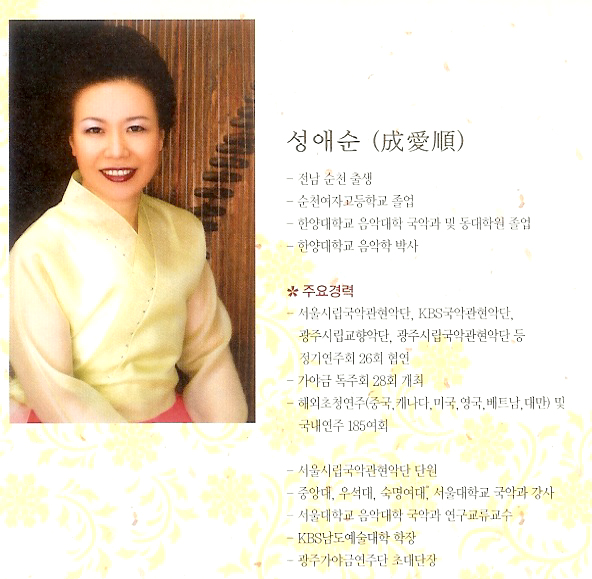 성애순 (成愛順)
- 전남 순천 출생
- 순천여자고등학교 졸업
- 한양대학교 음악대학 국악과 및 동대학원 졸업
- 한양대학교 음악학 박사
✽ 주요경력
- 서울시립국악관현악단, KBS국악관현악단,
광주시립교향악단, 광주시립국악관현악단 등
정기연주회 26회 협연
- 가야금 독주회 28회 개최
- 해외초청연주(중국,캐나다,미국,영국,베트남,대만) 및
국내연주 185여회
- 서울시립국악관현악단 단원
- 중앙대, 우석대, 숙명여대, 서울대학교 국악과 강사
- 서울대학교 음악대학 국악과 연구교류교수
- KBS남도예술대학 학장
- 광주가야금연주단 초대단장